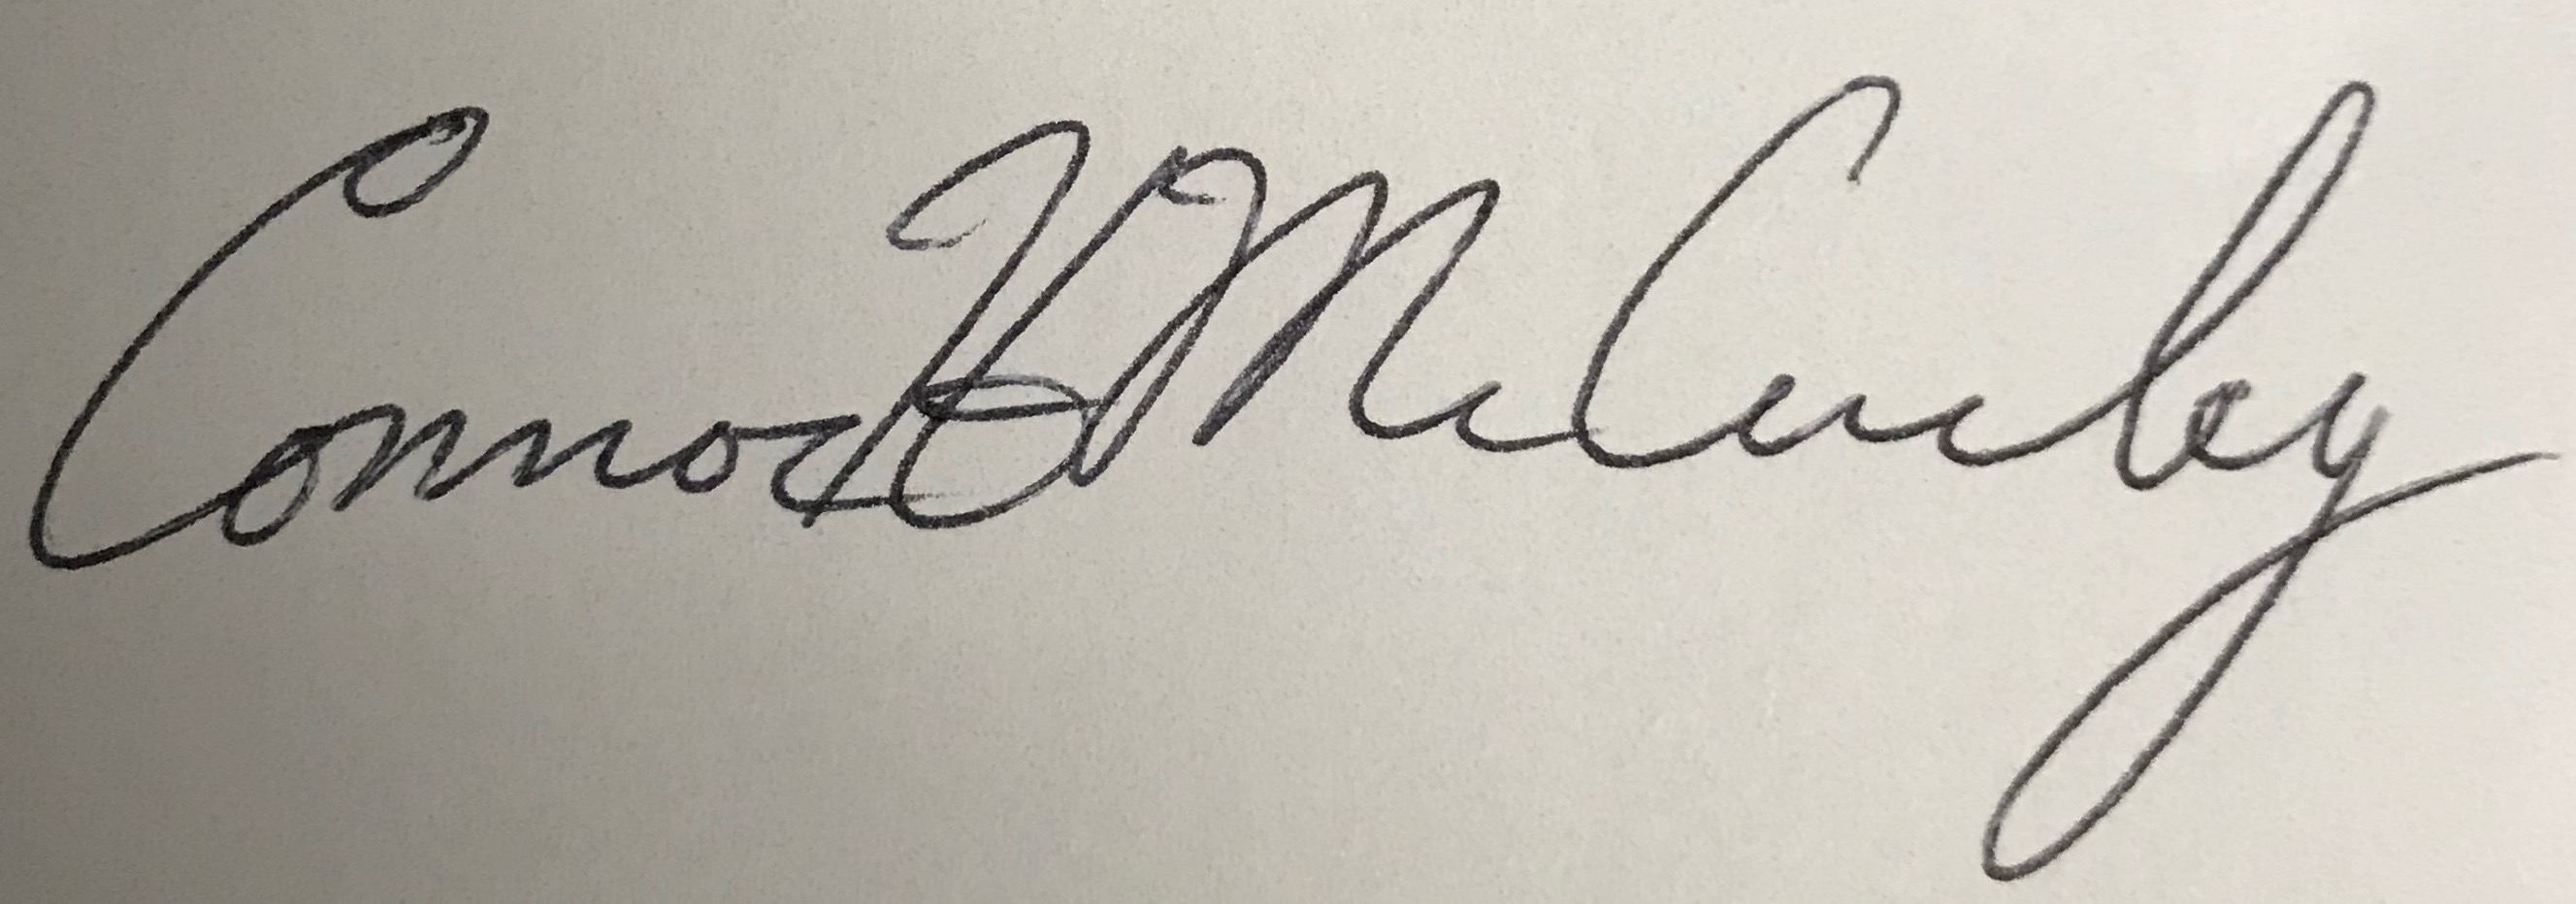 Connor H McCurley